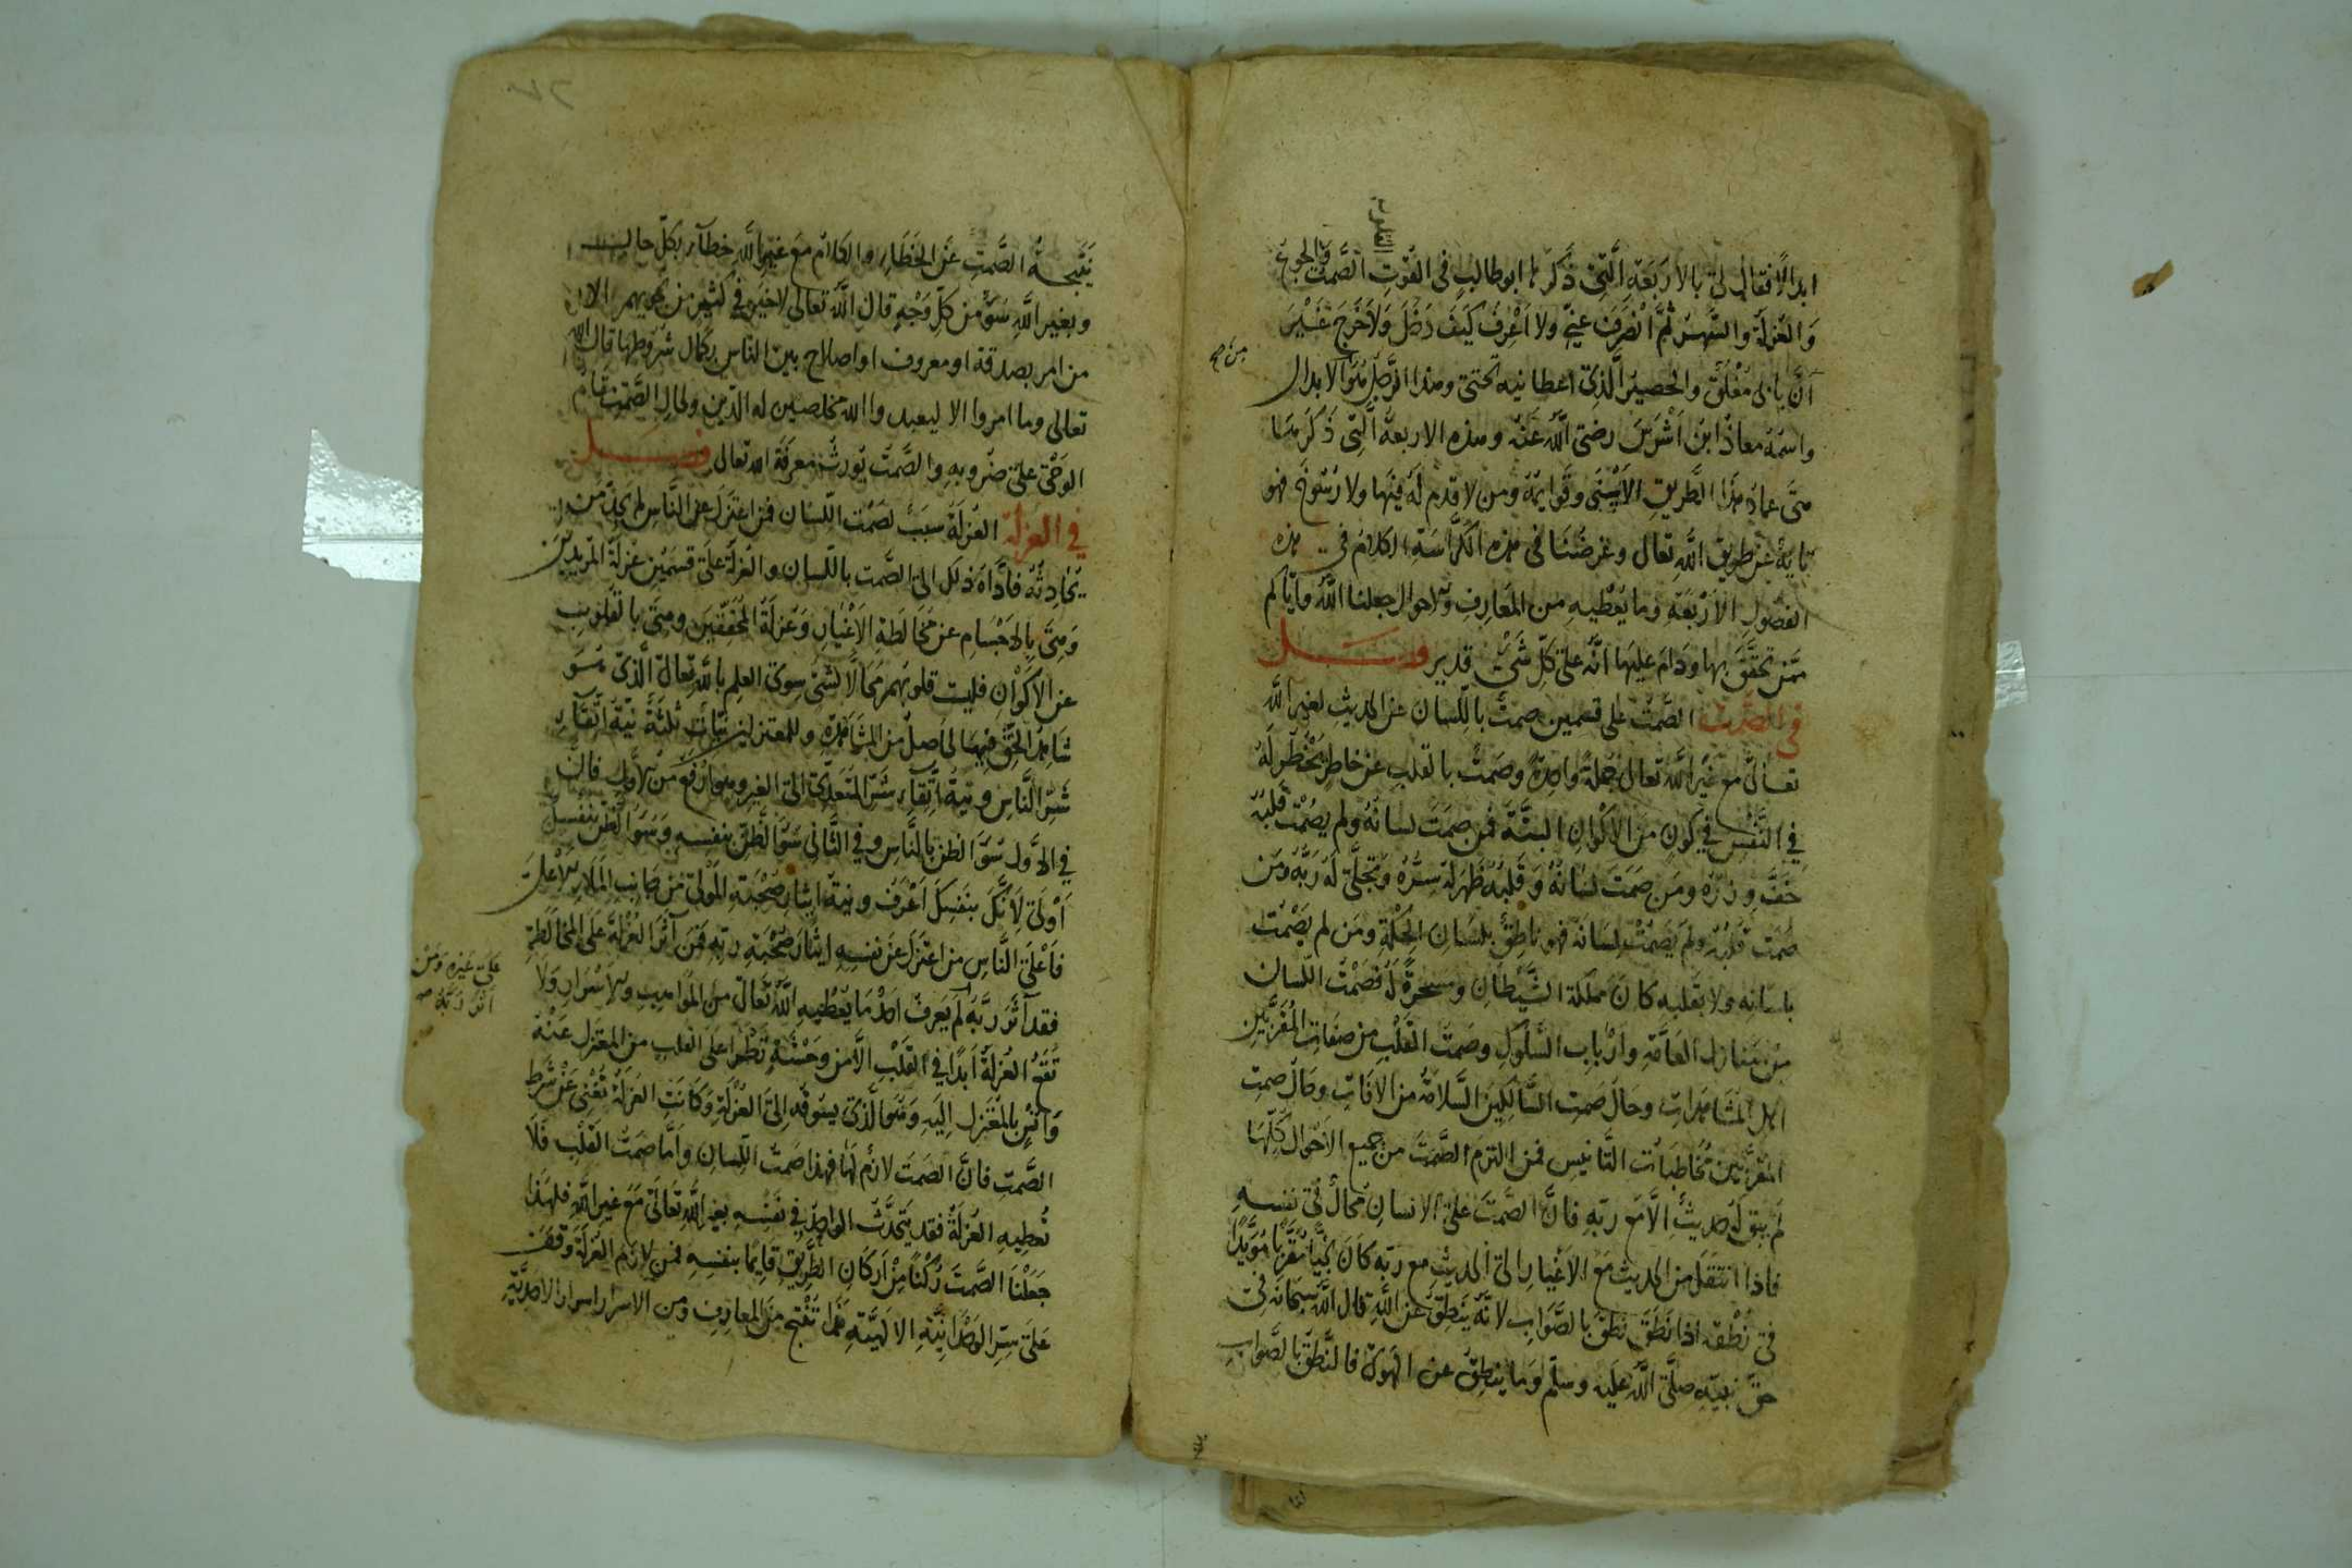 ابدالا فقال لي بالاربعة التي ذكرها ابو طالب في القوت الصمت والجوع
والعزلة والسهر ثم انصرف عني ولا اعرف كيف دخل ولا خرج غير
ان بابي مغلق والحصير الذي اعطانيه تحتي وهذا الرجل هو الابدال
من صح
واسمه معاذ ابن اشرس رضي الله عنه وهذه الاربعة التي ذكرها
هي عماد هذا الطريق الاسنى وقوايمه ومن لا قدم له فيها ولا رسوخ فهو
تايه عن طريق الله تعالى وغرضنا في هذه الكراسة الكلام في هذه
الفصول الاربعة وما يعطيه من المعارف والاحوال جعلنا الله واياكم
ممن تحقق بها ودام عليها انه على كل شيء قدير فصل
في الصمت الصمت على قسمين صمت باللسان عن الحديث لغير الله
تعالى مع غير الله تعالى جملة واحدة وصمت بالقلب عن خاطر يخطر له
في النفس في كون من الاكوان البتة فمن صمت لسانه ولم يصمت قلبه
خف وزره ومن صمت لسانه وقلبه ظهر له سره وتجلى له ربه ومن
صمت قلبه ولم يصمت لسانه فهو ناطق بلسان الحكمة ومن لم يصمت
بلسانه ولا بقلبه كان مملكة الشيطان ومسخرة له فصمت اللسان
من منازل العامة وارباب السلوك وصمت القلب من صفات المقربين
اهل المشاهدات وحال صمت السالكين السلامة من الافات وحال صمت
المقربين مخاطبات التانيس فمن التزم الصمت من جميع الاحوال كلها
لم يبق له حديث الا مع ربه فان الصمت على الانسان محال في نفسه
فاذا انتقل من الحديث مع الاغيار الى الحديث مع ربه كان نجيا مقربا مؤيدا
في نطقه اذا نطق نطق بالصواب لانه ينطق عن الله قال الله سبحانه في
حق نبيه صلى الله عليه وسلم وما ينطق عن الهوى فالنطق بالصواب
نتيجة الصمت عن الخطاء والكلام مع غير الله خطاء بكل حال
وبغير الله سوء من كل وجه قال الله تعالى لا خير في كثير من نجويهم الا
من امر بصدقة او معروف او اصلاح بين الناس بكمال شروطها قال الله
تعالى وما امروا الا ليعبدوا الله مخلصين له الدين ولحال الصمت مقام
الوحي على ضروبه والصمت يورث معرفة الله تعالى فصل
في العزلة العزلة سبب لصمت اللسان فمن اعتزل عن الناس لم يجد من
يحادثه فاداه ذلك الى الصمت باللسان والعزلة على قسمين عزلة المريدين
وهي بالاجسام عن مخالطة الاغيار وعزلة المحققين وهي بالقلوب
عن الاكوان فليست قلوبهم محالا لشيء سوى العلم بالله تعالى الذي هو
شاهد الحق فيها الحاصل من المشاهدة وللمعتزلين نيات ثلثة نية اتقاء
شر الناس ونية اتقاء شره المتعدي الى الغير وهو ارفع من الاول فان
في الاول سوء الظن بالناس وفي الثاني سوء الظن بنفسه وسوء الظن بنفسك
اولى لانك بنفسك اعرف ونية ايثار صحبة المولى من جانب الملاء الاعلى
فاعلى الناس من اعتزل عن نفسه ايثار صحبة ربه فمن آثر العزلة على المخالطة
على غيره ومن
آثر ربه صح
فقد آثر ربه لم يعرف احد ما يعطيه الله تعالى من المواهب والاسرار ولا
تقع العزلة ابدا في القلب الا من وحشة تطرأ على القلب من المعتزل عنه
وانس بالمعتزل اليه وهو الذي يسوقه الى العزلة وكانت العزلة تغني عن شرط
الصمت فان الصمت لازم لها فهذا صمت اللسان واما صمت القلب فلا
تعطيه العزلة فقد يتحدث الواحد في نفسه بغير الله تعالى مع غير الله فلهذا
جعلنا الصمت ركنا من اركان الطريق قايما بنفسه فمن لازم العزلة وقف
على سر الوحدانية الالهية فما تنتج من المعارف ومن الاسرار اسرار الاحدية